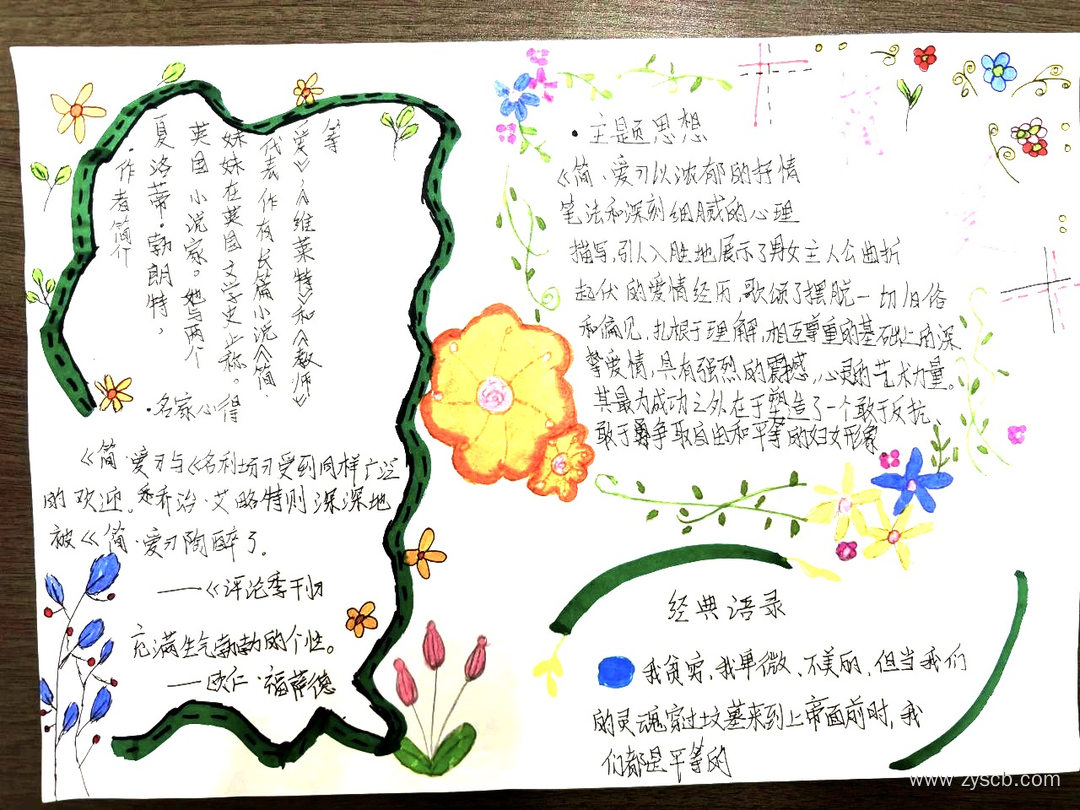 ·作者简介
夏洛蒂·勃朗特，
英国小说家。她与两个
妹妹在英国文学史上称。
代表作有长篇小说《简·
爱》《维莱特》和《教师》
等
·名家心得
《简·爱》与《名利场》受到同样广泛
的欢迎。乔治·艾略特则深深地
被《简·爱》陶醉了。
——《评论季刊》
充满生气勃勃的个性。
——欧仁·福萨德
·主题思想
《简·爱》以浓郁的抒情
笔法和深刻细腻的心理
描写,引人入胜地展示了男女主人公曲折
起伏的爱情经历,歌颂了摆脱一切旧俗
和偏见,扎根于理解,相互尊重的基础上的深
挚爱情,具有强烈的震撼,心灵的艺术力量。
其最为成功之外在于塑造了一个敢于反抗,
敢于争取自由和平等的妇女形象
经典语录
我贫穷,我卑微、不美丽,但当我们
的灵魂穿过坟墓来到上帝面前时,我
们都是平等的
www.zyscb.com